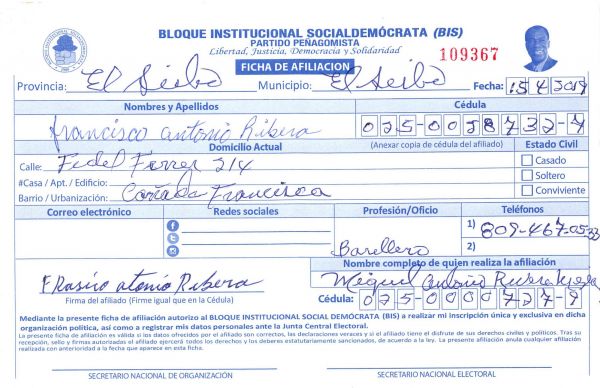 BLOQUE INSTITUCIONAL SOCIALDEMÓCRATA (BIS)
PARTIDO PEÑAGOMISTA
Libertad, Justicia, Democracia y Solidaridad
109367
FICHA DE AFILIACION
Provincia: El Seibo Municipio: El Seibo Fecha: 15 4 2019
Nombres y Apellidos Cédula
francisco antonio Ribera 025-0028732-7
Domicilio Actual (Anexar copia de cédula del afiliado) Estado Civil
Calle: Fidel Ferrer 214 Casado
#Casa / Apt. / Edificio: Soltero
Barrio / Urbanización: Cañada Francisca Conviviente
Correo electrónico Redes sociales Profesión/Oficio Teléfonos
1) 809-467-0533
2)
Barellero
Nombre completo de quien realiza la afiliación
FRasiro atonio Ribera Miguel Antonio
Firma del afiliado (Firme igual que en la Cédula) Cédula: 025-0007277-9
Mediante la presente ficha de afiliación autorizo al BLOQUE INSTITUCIONAL SOCIAL DEMÓCRATA (BIS) a realizar mi inscripción única y exclusiva en dicha
organización política, así como a registrar mis datos personales ante la Junta Central Electoral.
La presente ficha de afiliación es válida si los datos ofrecidos por el afiliado son correctos, las declaraciones veraces y si el afiliado tiene el disfrute de sus derechos civiles y políticos. Tras su
recepción, sello y firmas autorizadas el afiliado ejercerá todos los derechos y los deberes estatutariamente sancionados, de acuerdo a la ley. La presente afiliación anula cualquier afiliación
realizada con anterioridad a la fecha que aparece en esta ficha.
SECRETARIO NACIONAL DE ORGANIZACIÓN SECRETARIO NACIONAL ELECTORAL